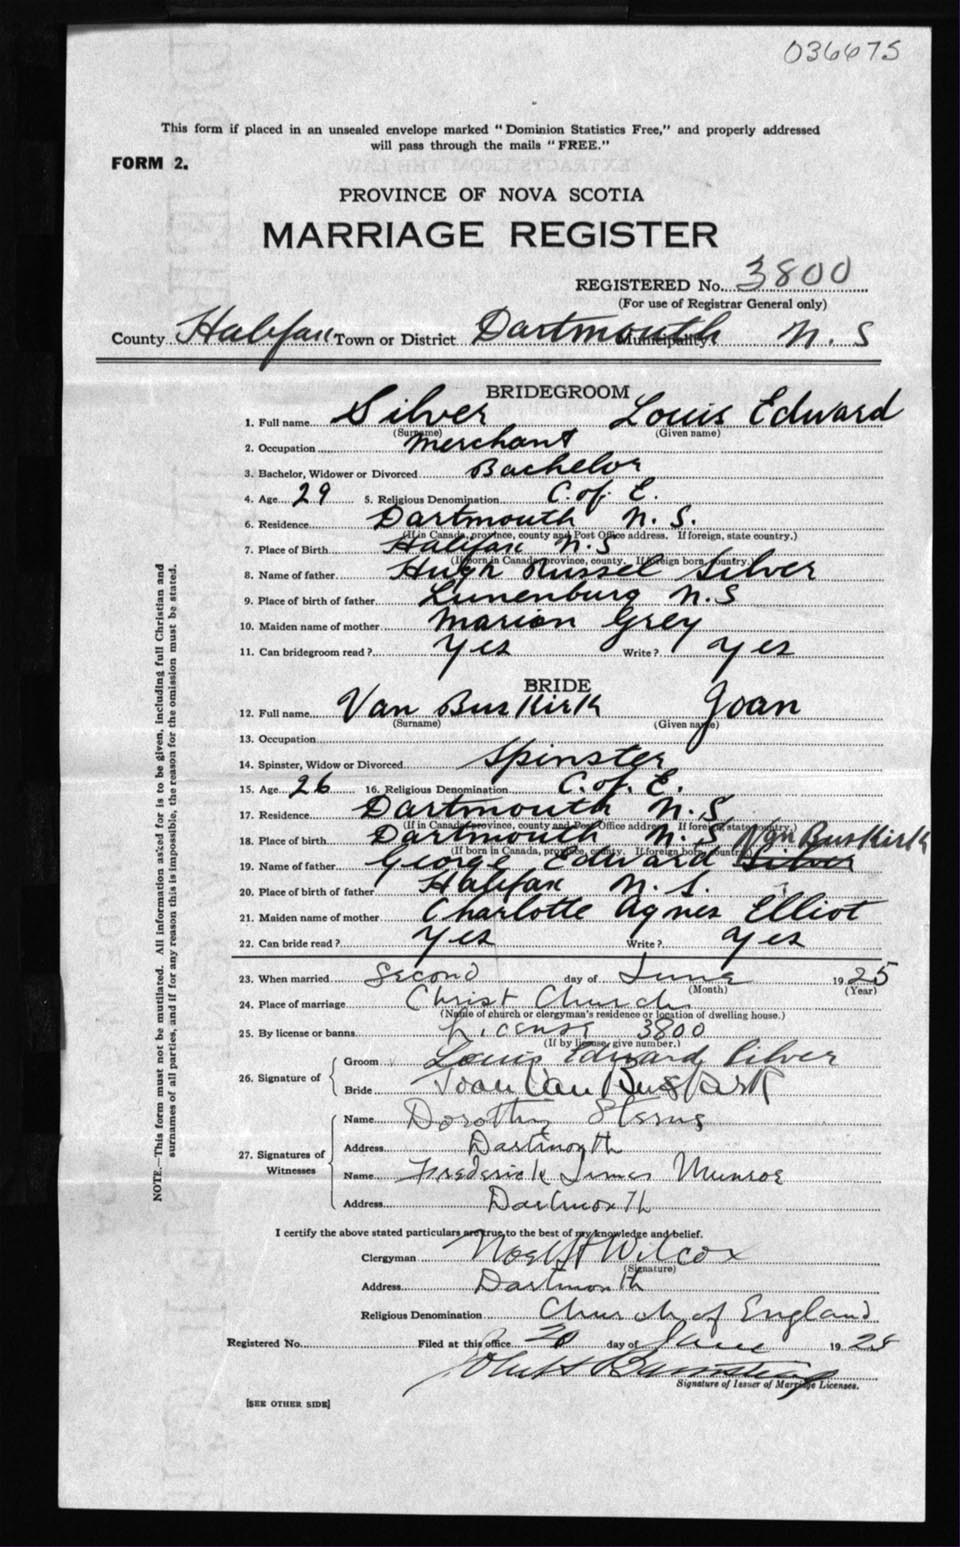 036675
This form if placed in an unsealed envelope marked "Dominion Statistics Free," and properly addressed
will pass through the mails "FREE."
FORM 2.
PROVINCE OF NOVA SCOTIA
MARRIAGE REGISTER
REGISTERED No. 3800
(For use of Registrar General only)
County Halifax Town or District Dartmouth Municipality N. S
BRIDEGROOM
1. Full name Silver Louis Edward
(Surname) (Given name)
2. Occupation Merchant
3. Bachelor, Widower or Divorced Bachelor
4. Age 29 5. Religious Denomination C. of. E.
6. Residence Dartmouth N. S.
(If in Canada, province, county and Post Office address. If foreign, state country.)
7. Place of Birth Halifax N. S
(If born in Canada, province, county. If foreign born, country.)
8. Name of father Hugh Russel Silver
9. Place of birth of father Lunenburg N. S
10. Maiden name of mother Marion Grey
11. Can bridegroom read? Yes Write? Yes
BRIDE
12. Full name Van Buskirk Joan
(Surname) (Given name)
13. Occupation
14. Spinster, Widow or Divorced Spinster
15. Age 26 16. Religious Denomination C. of. E.
17. Residence Dartmouth N. S
(If in Canada, province, county and Post Office address. If foreign, state country.)
18. Place of birth Dartmouth N. S. Van Buskirk
(If born in Canada, province, county. If foreign born, country.)
19. Name of father George Edward Silver
20. Place of birth of father Halifax N. S.
21. Maiden name of mother Charlotte Agnes Elliot
22. Can bride read? Yes Write? Yes
23. When married Second day of June 1925
(Month) (Year)
24. Place of marriage Christ Church
(Name of church or clergyman's residence or location of dwelling house.)
25. By license or banns License 3800
(If by license, give number.)
26. Signature of
Groom Louis Edward Silver
Bride Joan Van Buskirk
27. Signatures of Witnesses
Name Dorothy Sterns
Address Dartmouth
Name Frederick James Munroe
Address Dartmouth
I certify the above stated particulars are true to the best of my knowledge and belief.
Clergyman Noel H Wilcox
(Signature)
Address Dartmouth
Religious Denomination Church of England
Registered No. Filed at this office 20 day of June 1925
Signature of Issuer of Marriage Licenses.
[SEE OTHER SIDE]
NOTE.—This form must not be mutilated. All information asked for is to be given, including full Christian and
surnames of all parties, and if for any reason this is impossible, the reason for the omission must be stated.